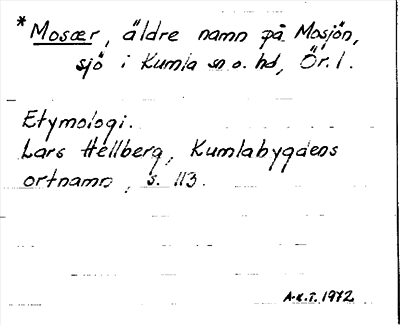 *Mosær, äldre namn på Mosjön,
sjö i Kumla sn o. hd, Ör. l.
Etymologi.
Lars Hellberg, Kumlabygdens
ortnamn, s. 113.
A-K.T. 1972